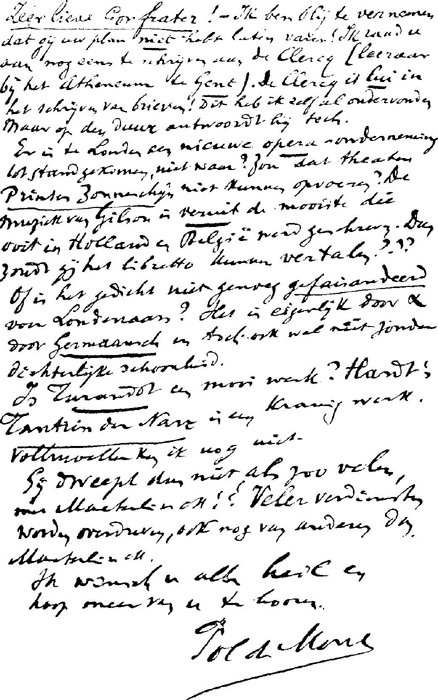 Zeer lieve Confrater! - Ik ben blij te vernemen
dat gij uw plan niet hebt laten varen! Ik raad u
aan nog eens te schrijven aan de Clercq (leeraar
bij het Atheneum te Gent). de Clercq is lui in
het schrijven van brieven! Dit heb ik zelf al ondervonden
Maar op den duur antwoordt hij toch.
Er is te Londen een nieuwe opera-onderneming
tot stand gekomen, niet waar? Zou dat theater
Prinses Zonneschijn niet kunnen opvoeren? De
muziek van Gilson is veruit de mooiste die
ooit in Holland en België werd geschreven. Dus
zoudt gij het libretto kunnen vertalen???
Of is het gedicht niet genoeg gefaisandeerd
voor Londenaars? Het is eigenlijk door &
door Germaansch en toch ook wel niet zonder
dichterlijke schoonheid.
Is Turandot een mooi werk? Hardt's
Tantris der Narr is een kranig werk.
Vollmoeller ken ik nog niet.
Gij dweept dus niet, als zoo velen,
met Maeterlinck!? Veler verdiensten
worden overdreven, ook nog van anderen dan
Maeterlinck.
Ik wensch u alle heil en
hoop meer van u te hooren.
Pol de Mont